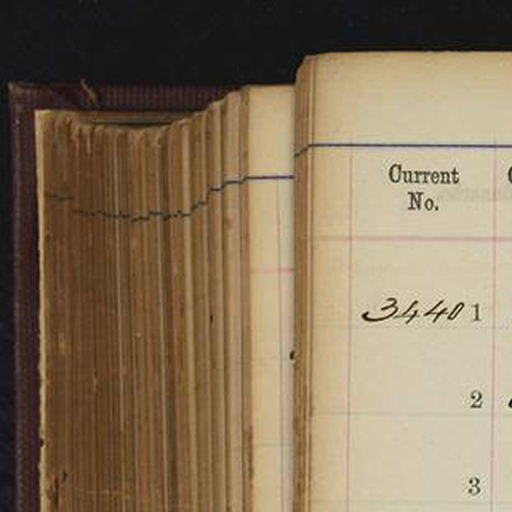 Current
No.
34401
2
3